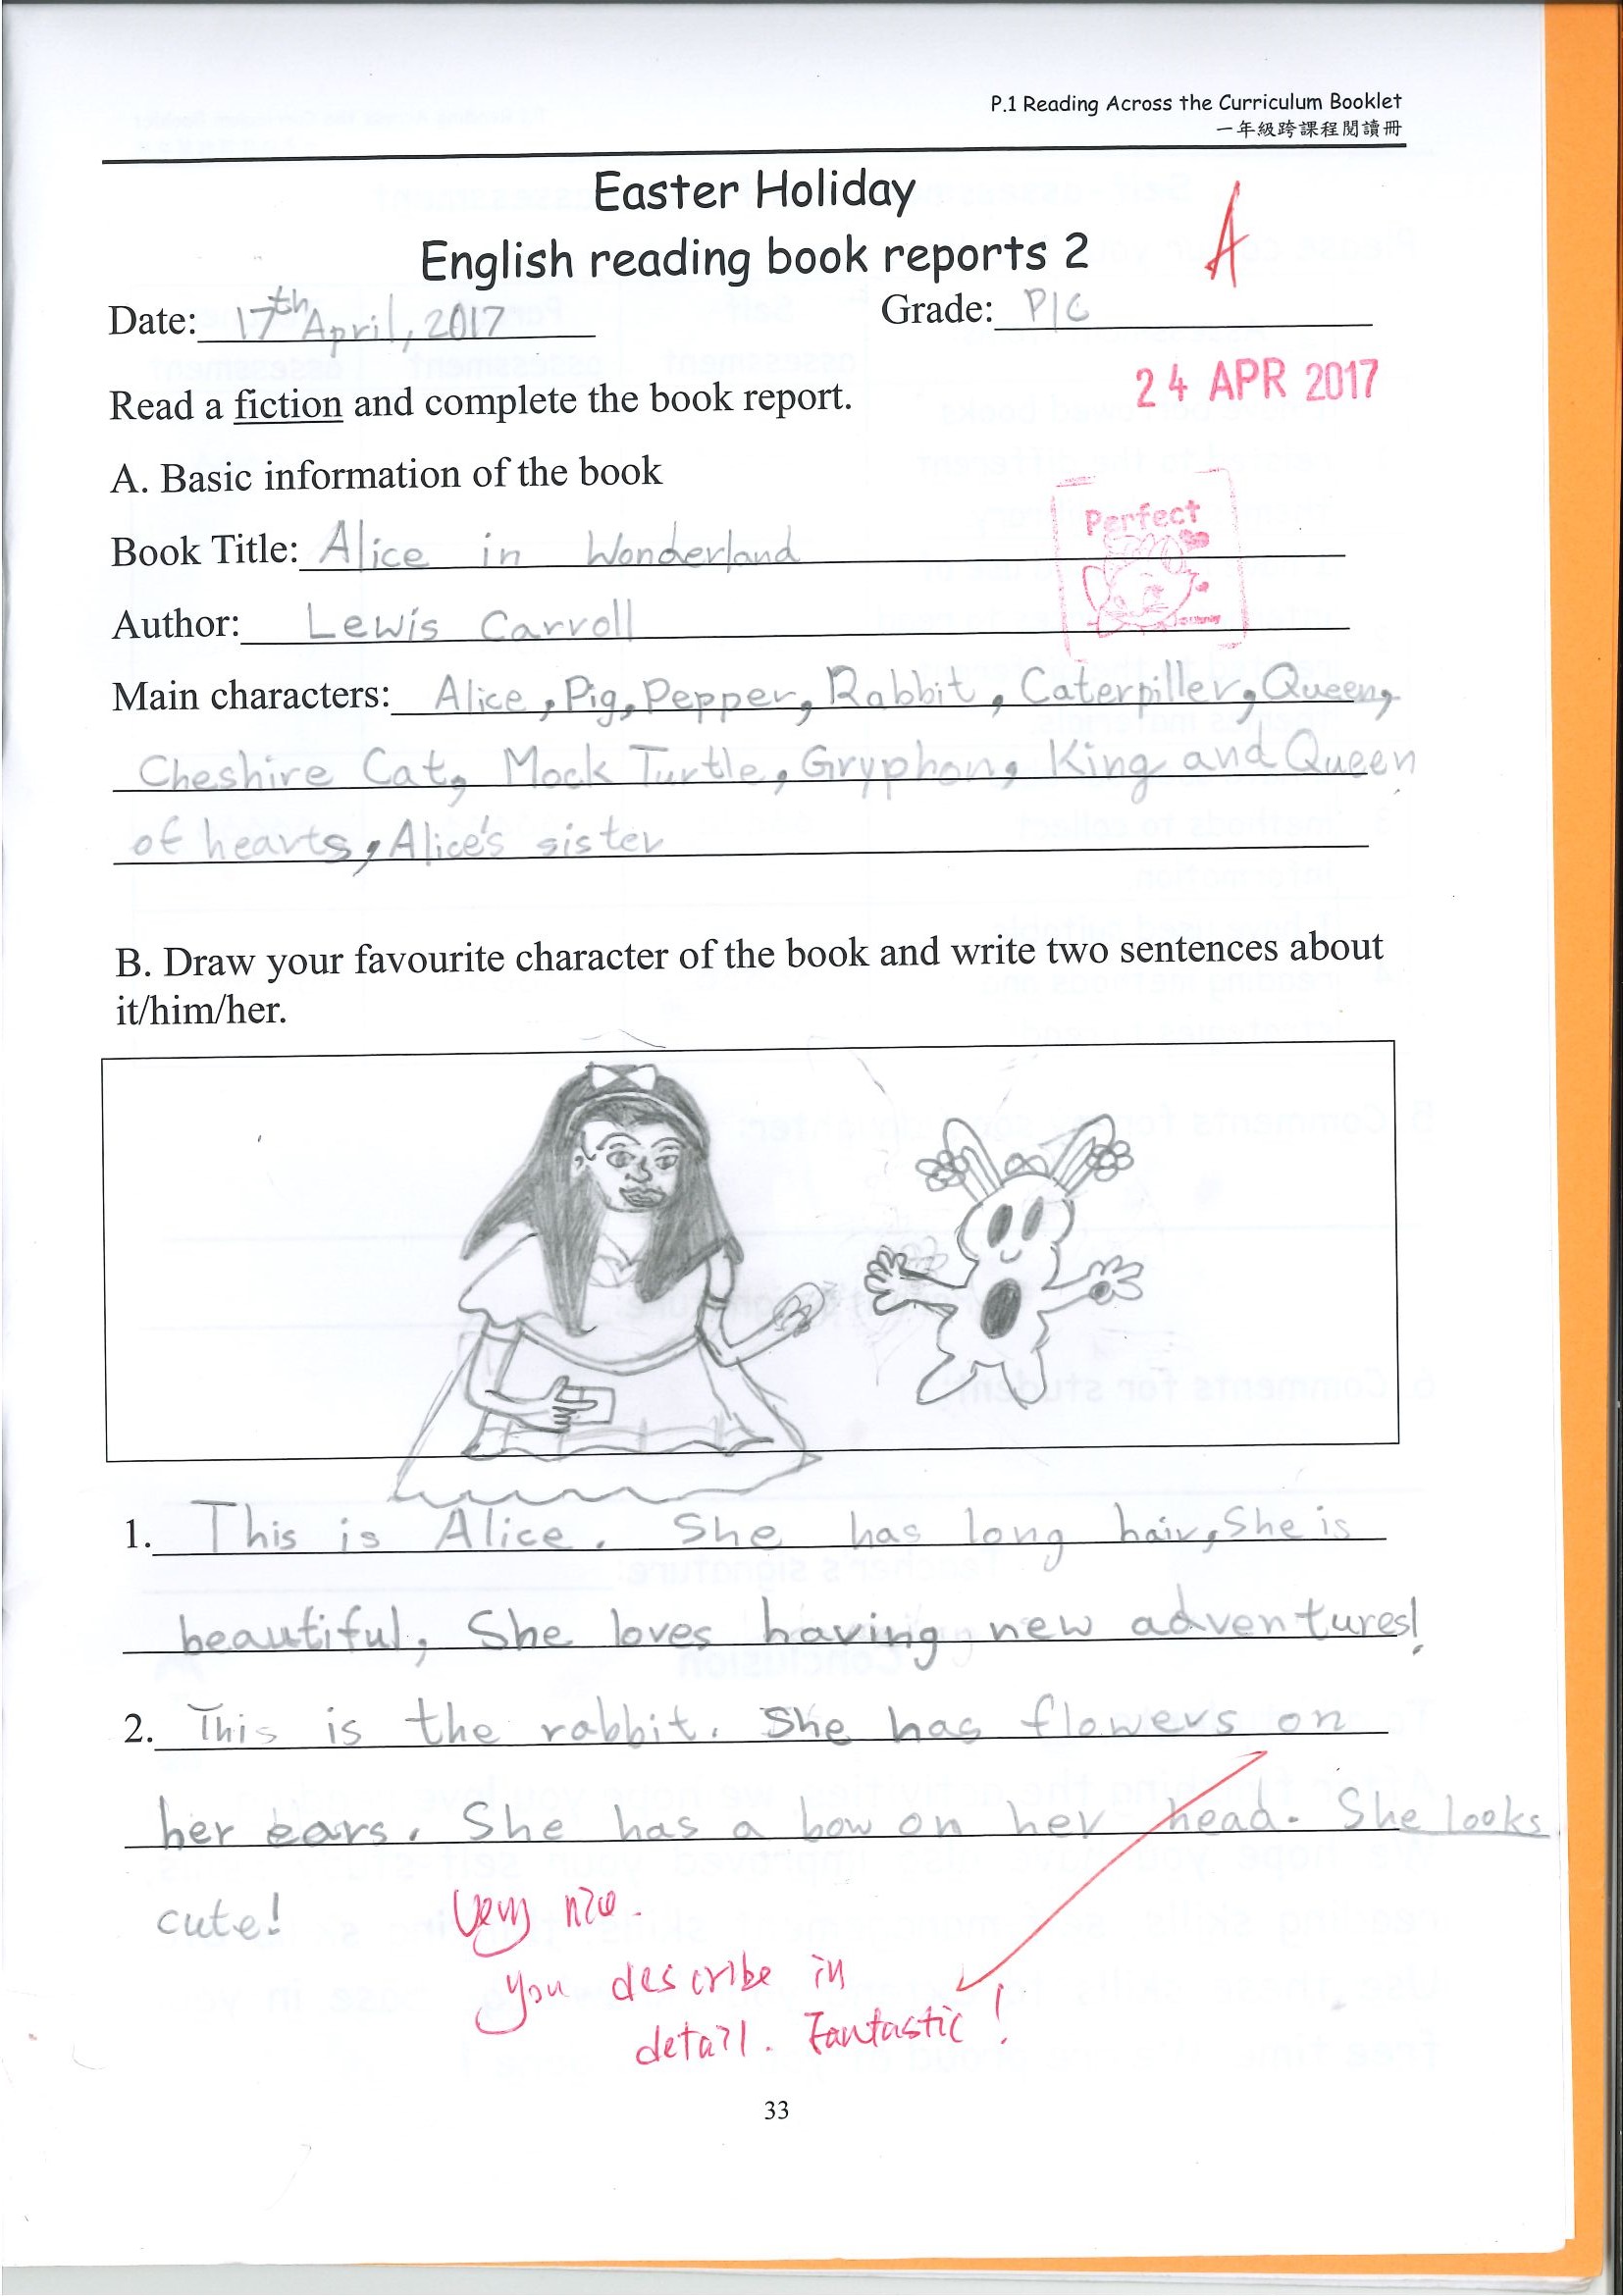 P.1 Reading Across the Curriculum Booklet
一年級跨課程閱讀冊
Easter Holiday
English reading book reports 2
A
Date: 17th April, 2017 Grade: P1C
24 APR 2017
Read a fiction and complete the book report.
A. Basic information of the book
Perfect
Book Title: Alice in Wonderland
Author: Lewis Carroll
Main characters: Alice, Pig, Pepper, Rabbit, Caterpiller, Queen,
Cheshire Cat, Mock Turtle, Gryphon, King and Queen
of hearts, Alice's sister
B. Draw your favourite character of the book and write two sentences about
it/him/her.
1. This is Alice. She has long hair, She is
beautiful, She loves having new adventures!
2. This is the rabbit. She has flowers on
her ears. She has a bow on her head. She looks
cute!
Very nice.
you describe in
detail. Fantastic!
33